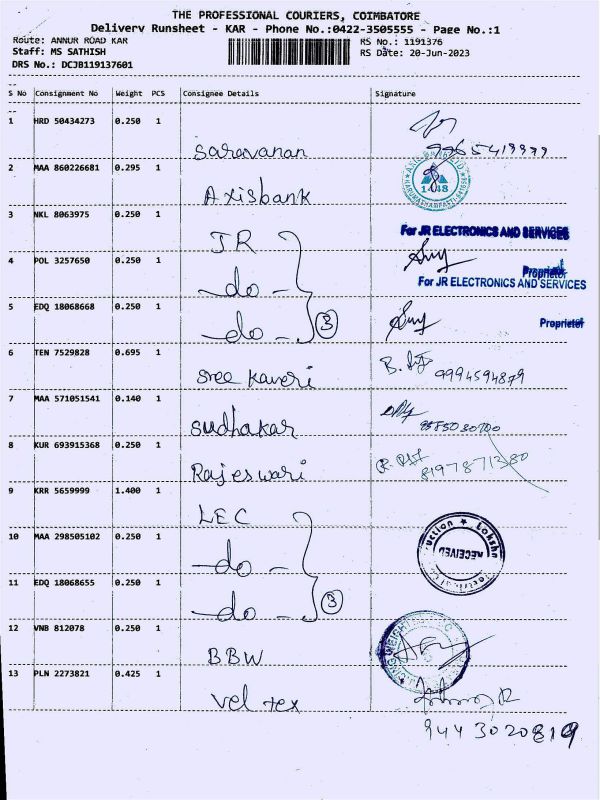 THE PROFESSIONAL COURIERS, COIMBATORE
Delivery Runsheet - KAR - Phone No.:0422-3505555 - Page No.:1
Route: ANNUR ROAD KAR
RS No.: 1191376
Staff: MS SATHISH
RS Date: 20-Jun-2023
DRS No.: DCJB119137601
S No Consignment No Weight PCS Consignee Details Signature
1 HRD 50434273 0.250 1
Saravanan
2 MAA 860226681 0.295 1
Axisbank
3 NKL 8063975 0.250 1
JR
For JR ELECTRONICS AND SERVICES
4 POL 3257650 0.250 1
-do-
Proprietor
For JR ELECTRONICS AND SERVICES
5 EDQ 18068668 0.250 1
-do- 3
Proprietor
6 TEN 7529828 0.695 1
Sree Kaveri 9994594879
7 MAA 571051541 0.140 1
Sudhakar 9585030700
8 KUR 693915368 0.250 1
Rajeswari 8197871380
9 KRR 5659999 1.400 1
LEC
10 MAA 298505102 0.250 1
-do-
RECEIVED
11 EDQ 18068655 0.250 1
-do- 3
12 VNB 812078 0.250 1
BBW
13 PLN 2273821 0.425 1
Vel tex
9443020819